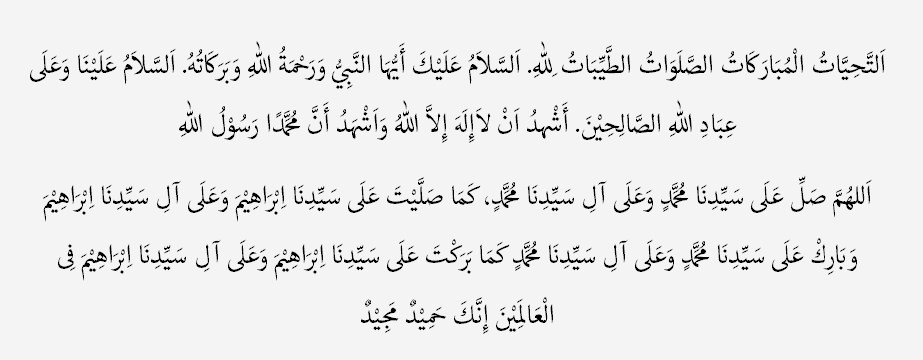 اَلتَّحِيَّاتُ الْمُبَارَكَاتُ الصَّلَوَاتُ الطَّيِّبَاتُ لِلّٰهِ. اَلسَّلاَمُ عَلَيْكَ أَيُّهَا النَّبِيُّ وَرَحْمَةُ اللهِ وَبَرَكَاتُهُ. اَلسَّلاَمُ عَلَيْنَا وَعَلَى
عِبَادِ اللهِ الصَّالِحِيْنَ. أَشْهدُ اَنْ لاَإِلَهَ إِلاَّ اللهُ وَاَشْهَدُ أَنَّ مُحَمَّدًا رَسُوْلُ اللهِ
اَللهُمَّ صَلِّ عَلَى سَيِّدِنَا مُحَمَّدٍ وَعَلَى آلِ سَيِّدِنَا مُحَمَّدٍ، كَمَا صَلَّيْتَ عَلَى سَيِّدِنَا اِبْرَاهِيْمَ وَعَلَى آلِ سَيِّدِنَا اِبْرَاهِيْمَ
وَبَارِكْ عَلَى سَيِّدِنَا مُحَمَّدٍ وَعَلَى آلِ سَيِّدِنَا مُحَمَّدٍ كَمَا بَرَكْتَ عَلَى سَيِّدِنَا اِبْرَاهِيْمَ وَعَلَى آلِ سَيِّدِنَا اِبْرَاهِيْمَ فِى
الْعَالَمِيْنَ إِنَّكَ حَمِيْدٌ مَجِيْدٌ